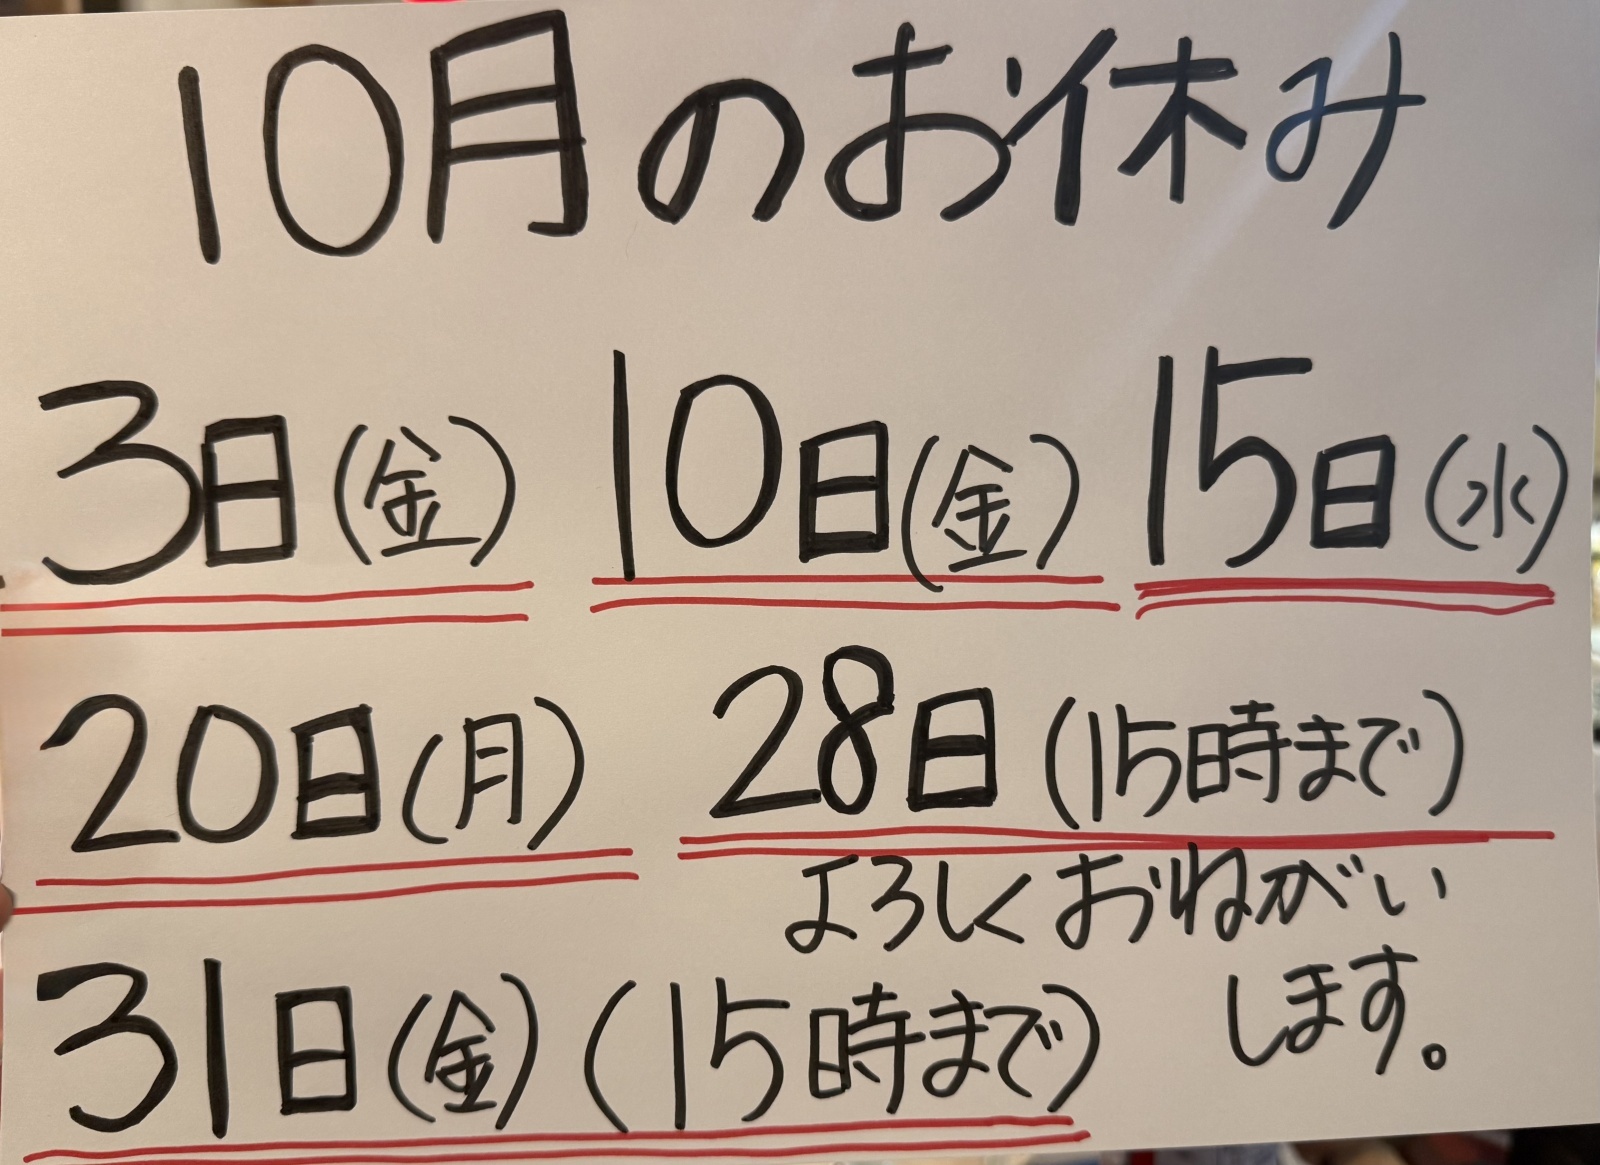 10月のお休み
3日(金) 10日(金) 15日(水)
20日(月) 28日(15時まで)
よろしくおねがい
します。
31日(金)(15時まで)